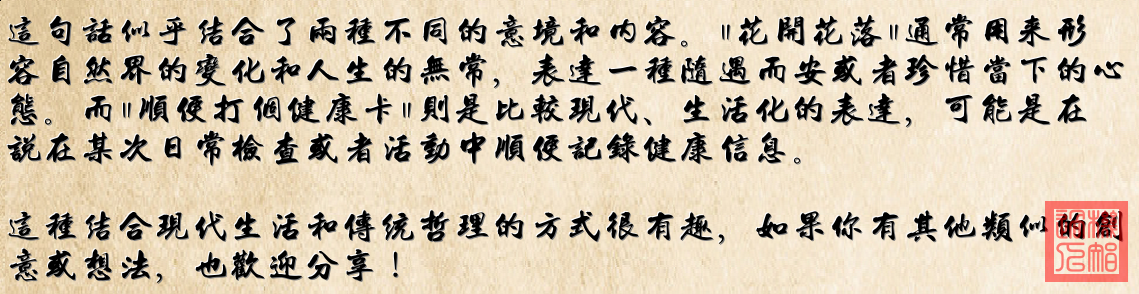 這句話似乎結合了兩種不同的意境和內容。"花開花落"通常用来形
容自然界的變化和人生的無常，表達一種隨遇而安或者珍惜當下的心
態。而"順便打個健康卡"則是比較現代、生活化的表達，可能是在
說在某次日常檢查或者活動中順便記錄健康信息。
這種結合現代生活和傳統哲理的方式很有趣，如果你有其他類似的創
意或想法，也歡迎分享！